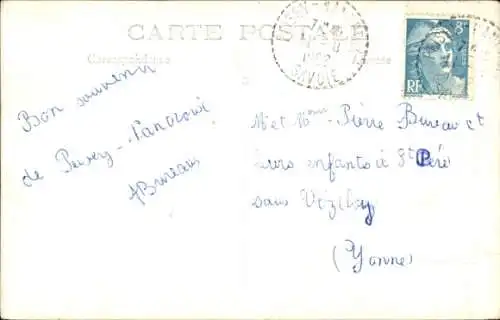 CARTE POSTALE
Correspondance
Adresse
SAVOIE
RF
Bon souvenir
de Peisey - Nancroix
ABureau
M et Mme Pierre Bureau et
leurs enfants à St Père
sous Vézelay
(Yonne)